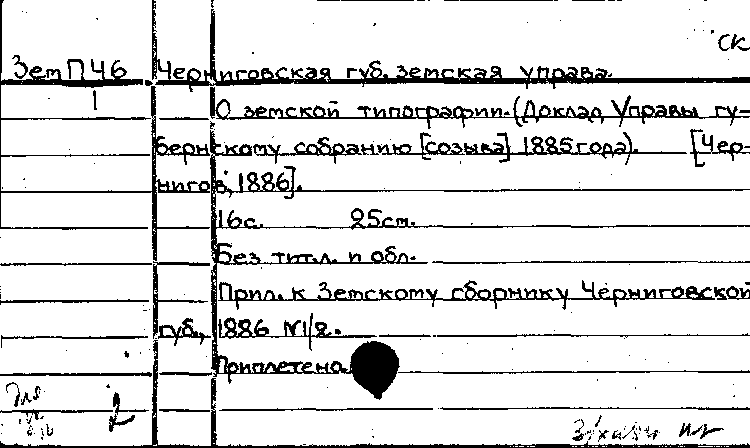 СК
Зем П 46 Черниговская губ. земская управа.
1
О земской типографии. (Доклад Управы гу-
бернскому собранию [созыва] 1885 года). [Чер-
нигов, 1886].
16с. 25см.
Без тит.л. и обл.
Прил. к Земскому сборнику Черниговской
губ., 1886 №1/2.
Приплетено.
2